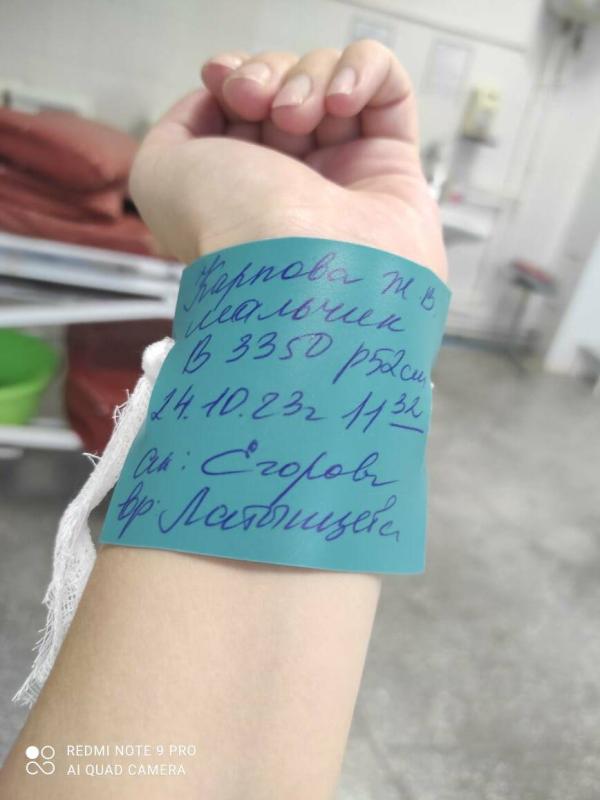 Карпова Ж В
мальчик
В 3350 р52см
24.10.23г 11 32
ак: Егорова
вр: Латынцева
REDMI NOTE 9 PRO
AI QUAD CAMERA